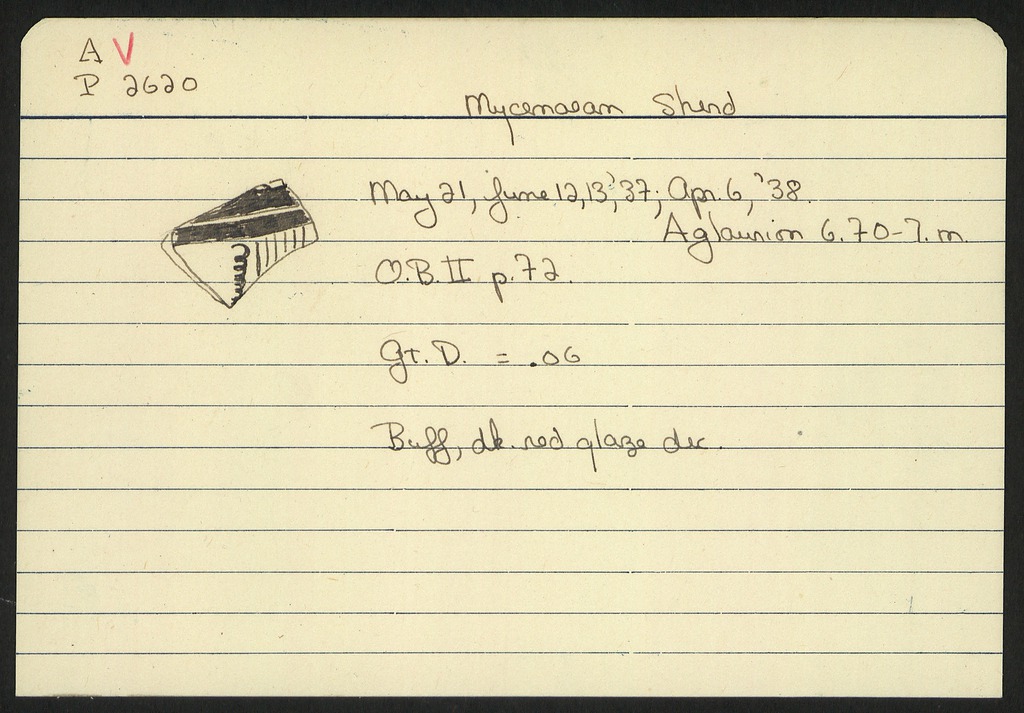 A V
P 2620
Mycenaean Sherd
May 21, June 12,13,'37; Apr. 6, '38.
Aglaurion 6.70-7. m.
O.B. II p.72.
Gt. D. = .06
Buff, dk. red glaze dec.